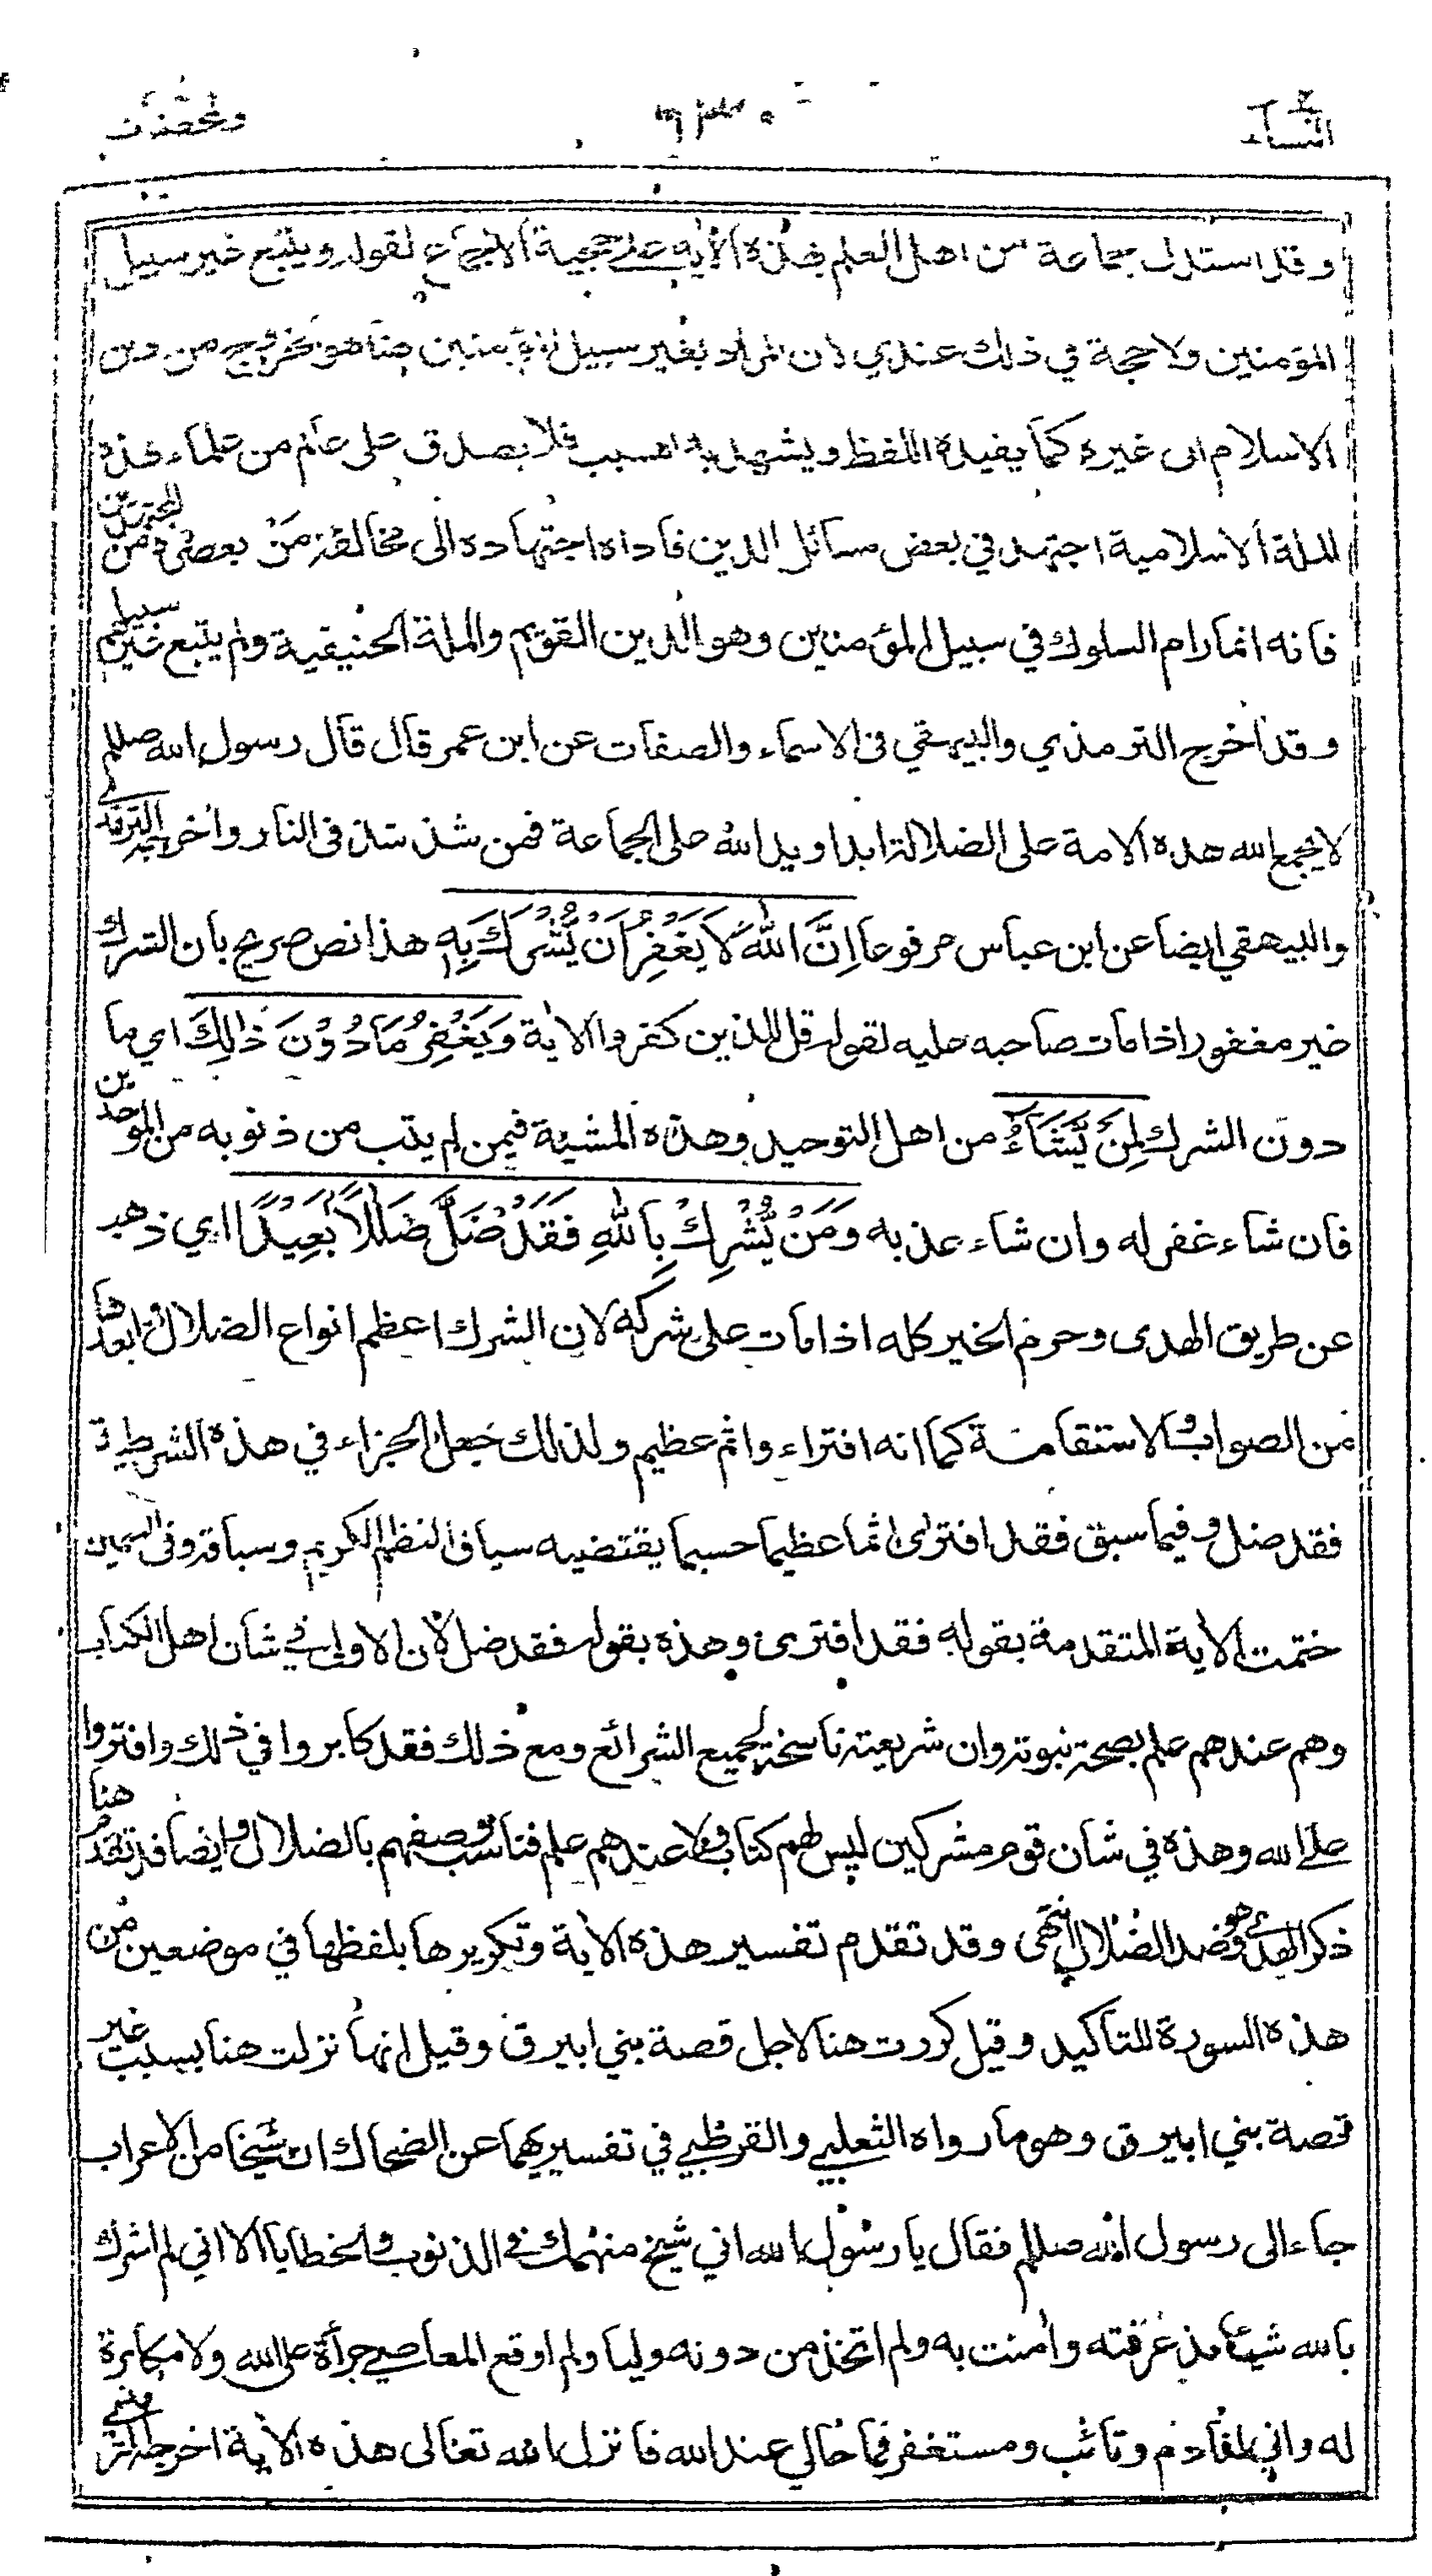 النساء
والمحصنات
وقد استدل جماعة من اهل العلم بهذه الاية على حجية الاجماع لقوله ويتبع غير سبيل
المؤمنين ولا حجة في ذلك عندي لان المراد بغير سبيل المؤمنين هنا هو الخروج من دين
الاسلام الى غيره كما يفيده اللفظ ويشهد به السبب فلا يصدق على عالم من علماء هذه
الملة الاسلامية اجتهد في بعض مسائل الدين فاداه اجتهاده الى مخالفة من بعصره من المجتهدين
فانه انما رام السلوك في سبيل المؤمنين وهو الدين القويم والملة الحنيفية ولم يتبع غير سبيلهم
وقد اخرج الترمذي والبيهقي في الاسماء والصفات عن ابن عمر قال قال رسول الله صللم
لا يجمع الله هذه الامة على الضلالة ابدا ويد الله على الجماعة فمن شذ شذ في النار واخرجه الترمذي
والبيهقي ايضا عن ابن عباس مرفوعا اِنَّ اللّٰهَ لَا يَغْفِرُ اَنْ يُّشْرَكَ بِهٖ هذا نص صريح بان الشرك
غير مغفور اذا مات صاحبه عليه لقوله قل للذين كفروا الاية وَيَغْفِرُ مَا دُوْنَ ذٰلِكَ اي ما
دون الشرك لِمَنْ يَّشَآءُ من اهل التوحيد وهذه المشيئة فيمن لم يتب من ذنوبه من الموحدين
فان شاء غفر له وان شاء عذبه وَمَنْ يُّشْرِكْ بِاللّٰهِ فَقَدْ ضَلَّ ضَلٰلًا بَعِيْدًا اي ذهب
عن طريق الهدى وحرم الخير كله اذا مات على شركه لان الشرك اعظم انواع الضلال وابعدها
من الصواب والاستقامة كما انه افتراء واثم عظيم ولذلك جعل الجزاء في هذه الشرطية
فقد ضل وفيما سبق فقد افترى اثما عظيما حسبما يقتضيه سياق النظم الكريم وسباقه وفى السمين
ختمت الاية المتقدمة بقوله فقد افترى وهذه بقوله فقد ضل لان الاولى في شان اهل الكتاب
وهم عندهم علم بصحة نبوته وان شريعته ناسخة لجميع الشرائع ومع ذلك فقد كابروا في ذلك وافتروا
على الله وهذه في شان قوم مشركين ليس لهم كتاب ولا عندهم علم فناسب وصفهم بالضلال وايضا قد تقدم هنا
ذكر الهدى وهو ضد الضلال انتهى وقد تقدم تفسير هذه الاية وتكريرها بلفظها في موضعين من
هذه السورة للتاكيد وقيل كررت هنا لاجل قصة بني ابيرق وقيل انها نزلت هنا بسبب غير
قصة بني ابيرق وهو ما رواه الثعلبي والقرطبي في تفسيريهما عن الضحاك ان شيخا من الاعراب
جاء الى رسول الله صللم فقال يا رسول الله اني شيخ منهمك في الذنوب والخطايا الا اني لم اشرك
بالله شيئا مذ عرفته وامنت به ولم اتخذ من دونه وليا ولم اوقع المعاصي جرأة على الله ولا مكابرة
له واني لنادم وتائب ومستغفر فما حالي عند الله فانزل الله تعالى هذه الاية اخرجه الترمذي